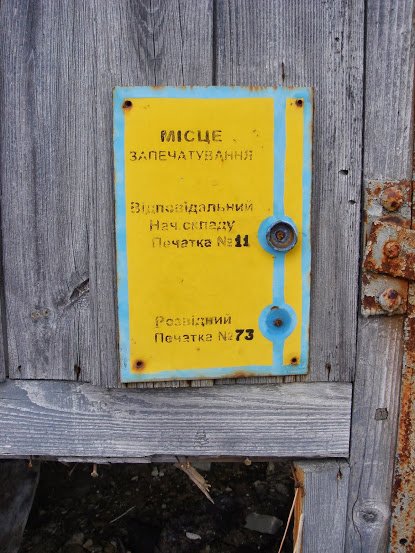 МІСЦЕ
ЗАПЕЧАТУВАННЯ
Відповідальний
Нач. складу
Печатка №11
Розвідний
Печатка №73